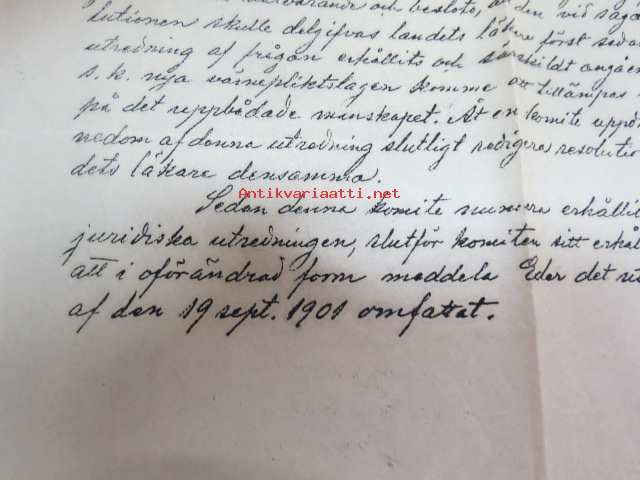 varande och beslöts, att den vid sagda
lutionen skulle delgifvas landets läkare först sedan
utredning af frågan erhållits och särskildt angåen
s.k. nya värnepliktslagen komme att tillämpas
på det uppbådade manskapet. Åt en komite uppdr
nedom af denna utredning slutligt redigera resolutio
dets läkare densamma.
Antikvariaatti.net
Sedan denna komite numera erhållit
juridiska utredningen, slutför komiten sitt erhål
att i oförändrad form meddela Eder det
af den 19 sept. 1901 omfattat.